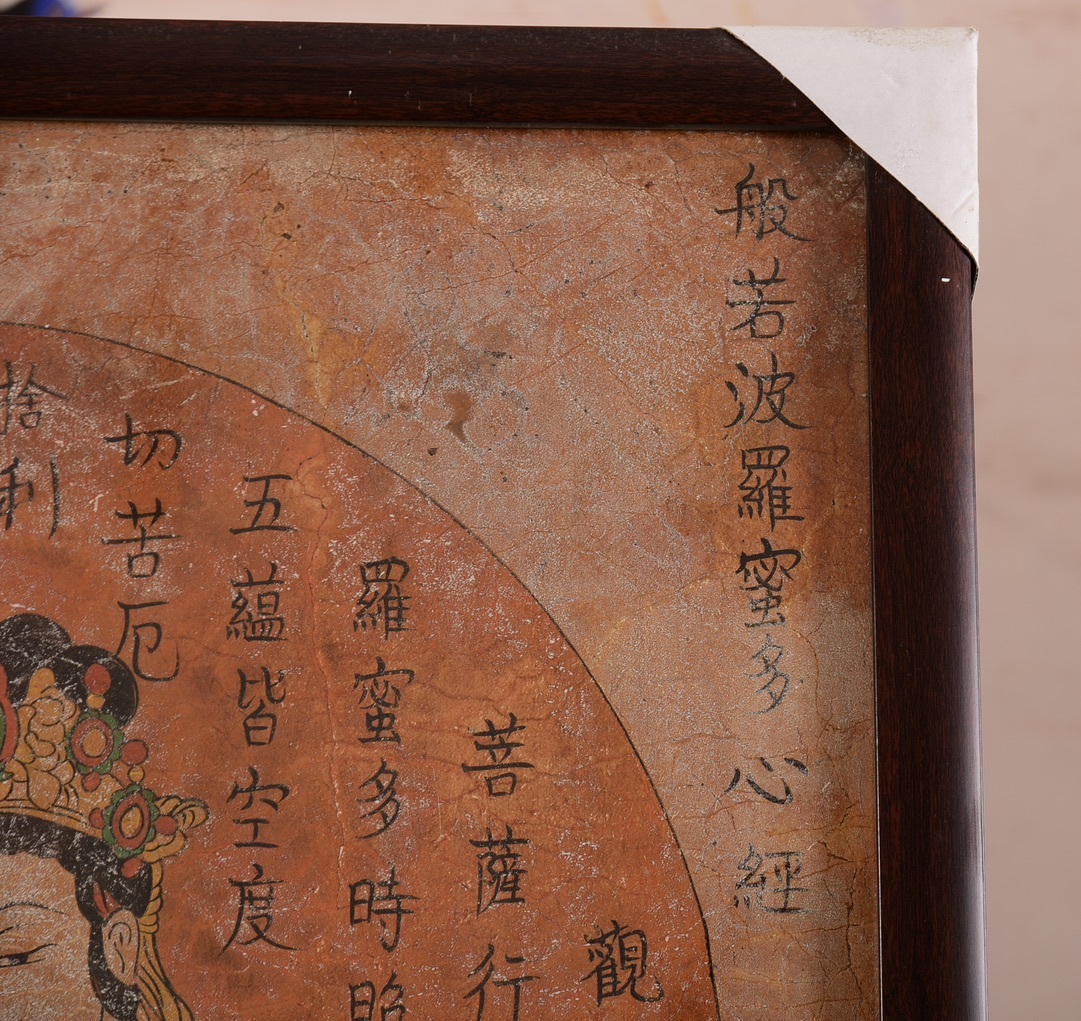 般若波羅蜜多心經
觀
菩薩行
羅蜜多時照
五蘊皆空度
切苦厄
捨利